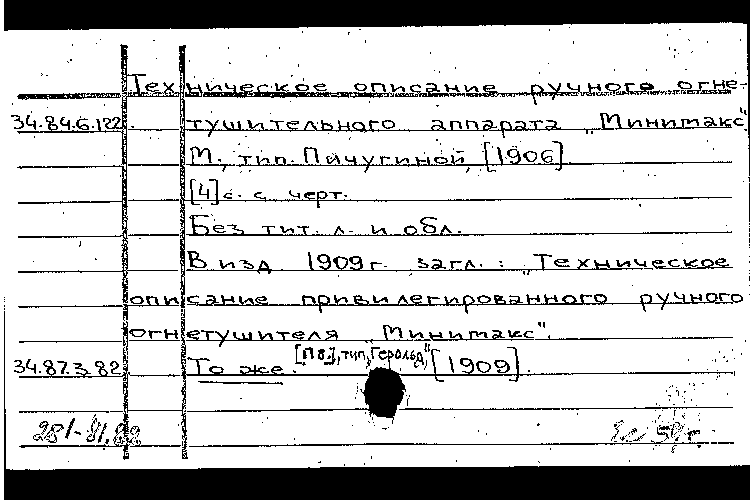 Техническое описание ручного огне-
34.84.6.122. тушительного аппарата „Минимакс"
М., тип. Пичугиной, [1906]
[4] с. с черт.
Без тит. л. и обл.
В изд. 1909 г. загл.: „Техническое
описание привилегированного ручного
огнетушителя „Минимакс".
34.87.3.82 То же. [Пб.], тип. „Герольд", [1909].
281-81,82